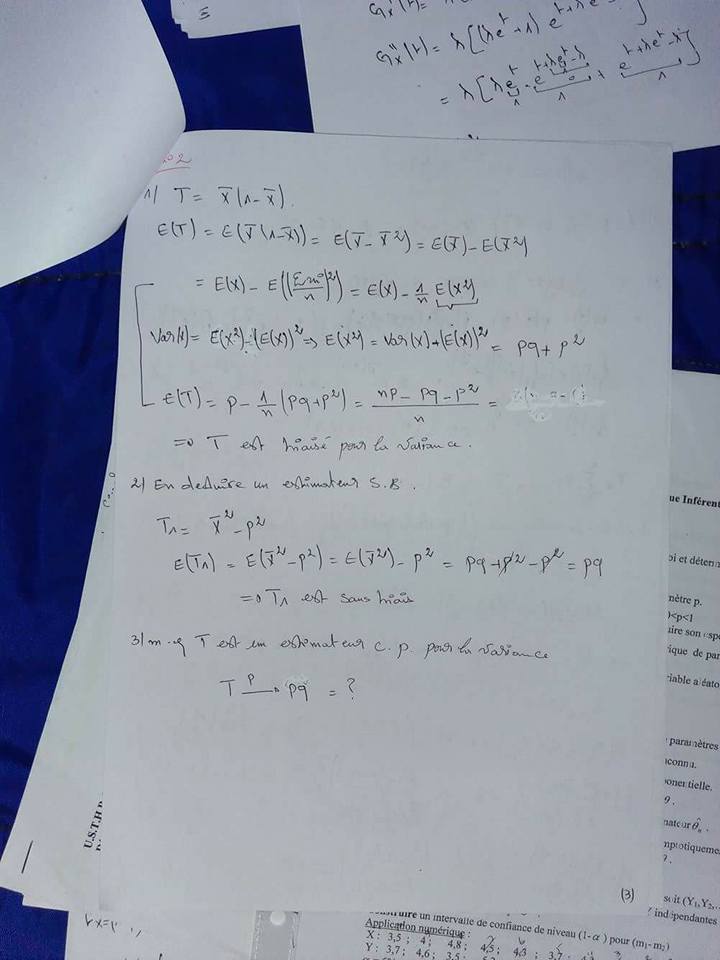 G''x(t) = λ[(λe^t+1) e^t+λe
= λ[λe^t . e^t+λe^t-λ + e^t+λe^t-λ]
N°2
1) T = X̄(1-X̄).
E(T) = E(X̄(1-X̄)) = E(X̄ - X̄²) = E(X̄) - E(X̄²)
= E(X) - E((Σxi/n)²) = E(X) - 1/n E(X²)
Var(X) = E(X²) - (E(X))² => E(X²) = Var(X) + (E(X))² = pq + p²
E(T) = p - 1/n (pq+p²) = (np - pq - p²)/n =
=> T est biaisé pour la variance.
2) En deduire un estimateur S.B.
T1 = X̄² - p²
E(T1) = E(X̄² - p²) = E(X̄²) - p² = pq + p² - p² = pq
=> T1 est sans biais
3) m.q T est un estimateur c.p. pour la variance
T —p→ pq = ?
(3)
ue Inférent
oi et déterm
nètre p.
0<p<1
uire son esp
rique de par
riable aléato
paramètres
nconnu.
ponentielle.
θ.
nateur θ̂n.
mptotiqueme
?.
soit (Y1,Y2,..
indépendantes
Construire un intervalle de confiance de niveau (1-α) pour (m1-m2)
Application numérique :
X : 3,5 ; 4 ; 4,8 ; 4,5 ; 4,3 ; 3,7 ;
Y : 3,7 ; 4,6 ; 3,5
U.S.T.H.B